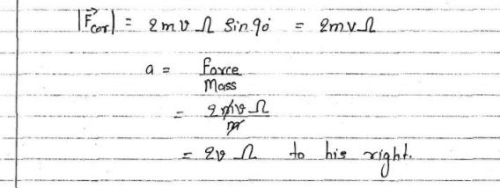 |F⃗cor| = 2mv Ω Sin90° = 2mvΩ
a = Force / Mass
= 2mv Ω / m
= 2v Ω to his right.